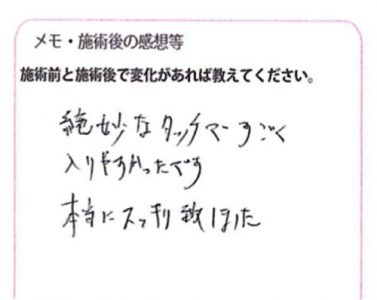 メモ・施術後の感想等
施術前と施術後で変化があれば教えてください。
絶妙なタッチですごく
入りやすかったです
本当にスッキリ致しました